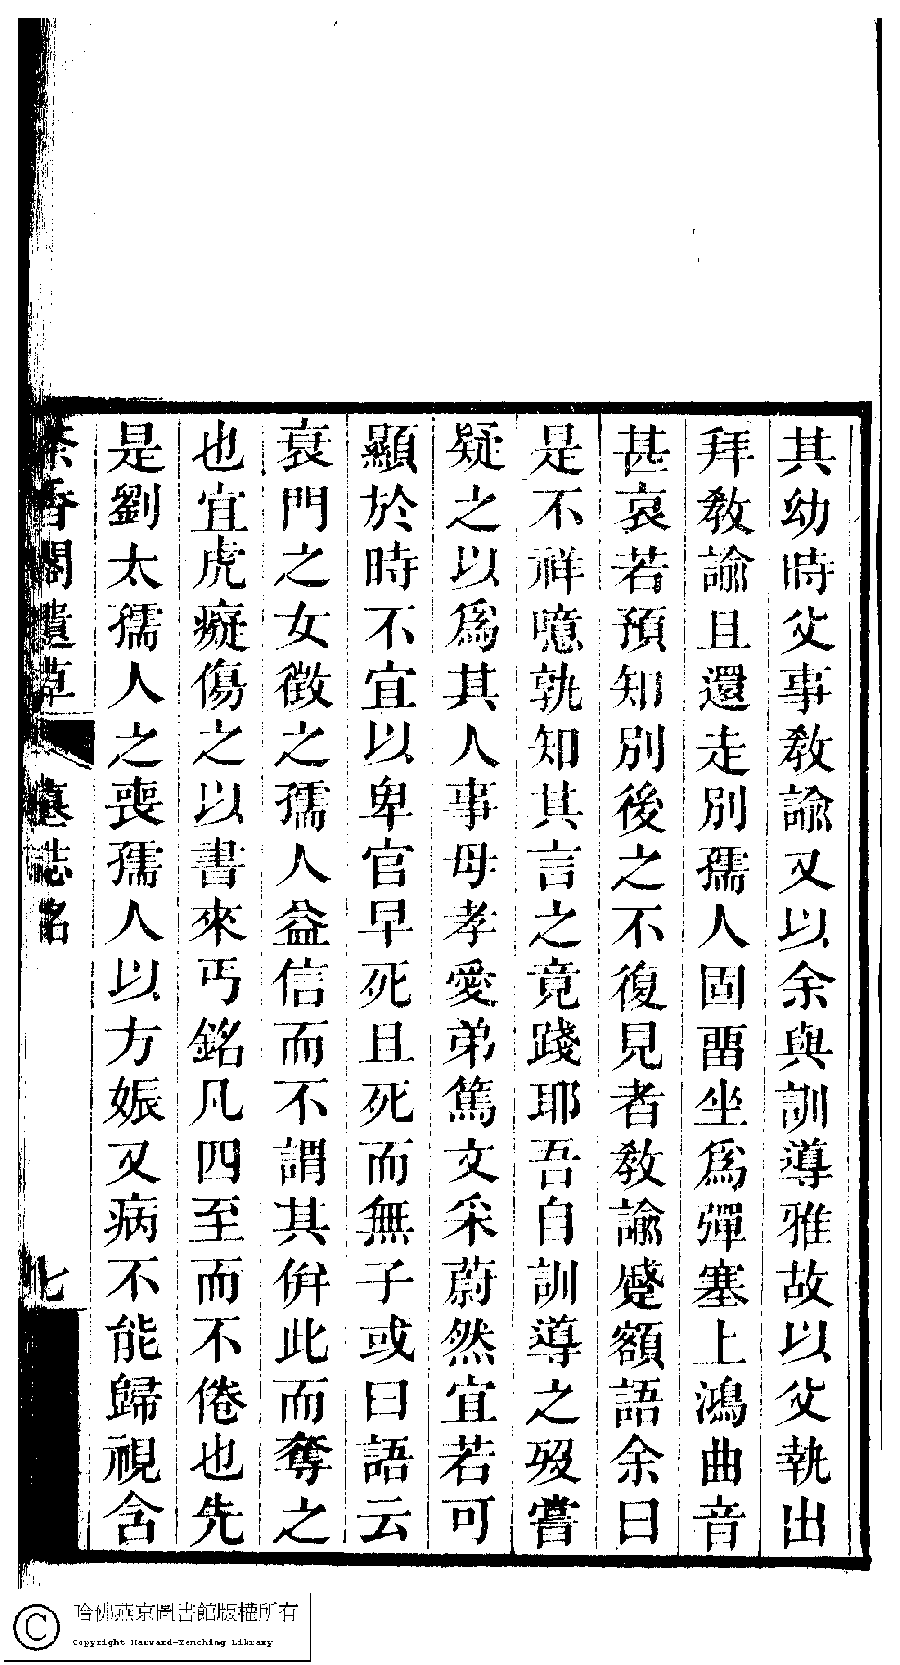 其幼時父事敎諭又以余與訓導雅故以父執出
拜敎諭且還走別孺人固畱坐爲彈塞上鴻曲音
甚哀若預知別後之不復見者敎諭蹙額語余曰
是不祥噫孰知其言之竟踐耶吾自訓導之歿嘗
疑之以爲其人事母孝愛弟篤文采蔚然宜若可
顯於時不宜以卑官早死且死而無子或曰語云
衰門之女徵之孺人益信而不謂其倂此而奪之
也宜虎癡傷之以書來丐銘凡四至而不倦也先
是劉太孺人之喪孺人以方娠又病不能歸視含
香閣遺草
墓誌銘
七
哈佛燕京圖書館版權所有
Copyright Harvard-Yenching Library